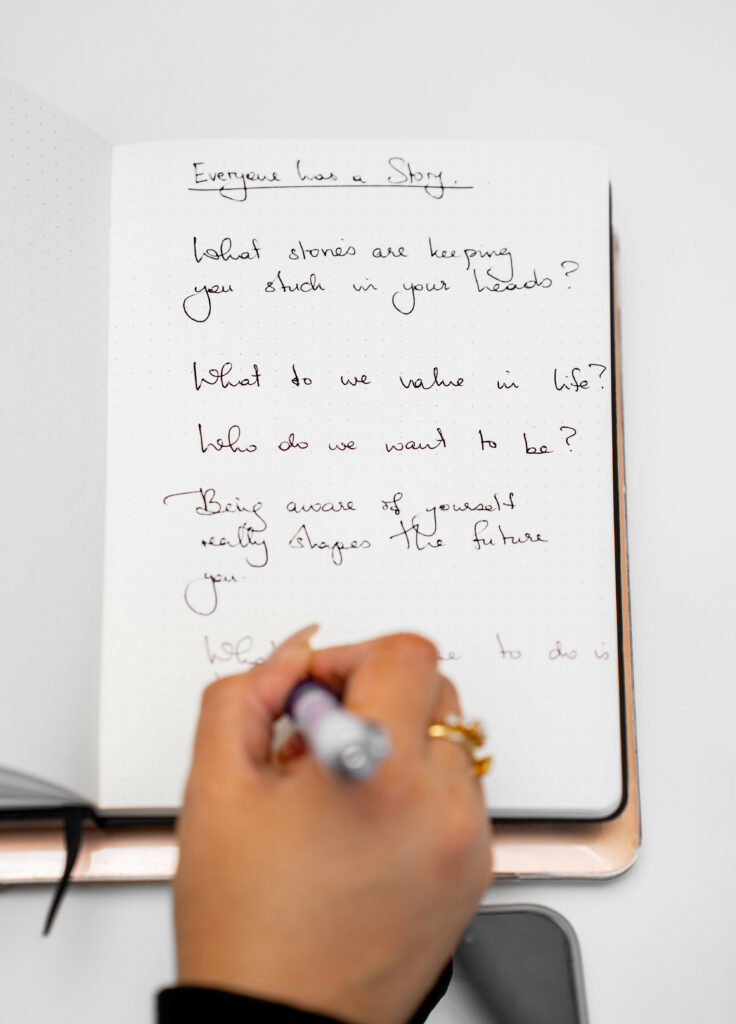 Everyone has a Story.
What stories are keeping
you stuck in your heads?
What do we value in life?
Who do we want to be?
Being aware of yourself
really shapes the future
you.
to do is